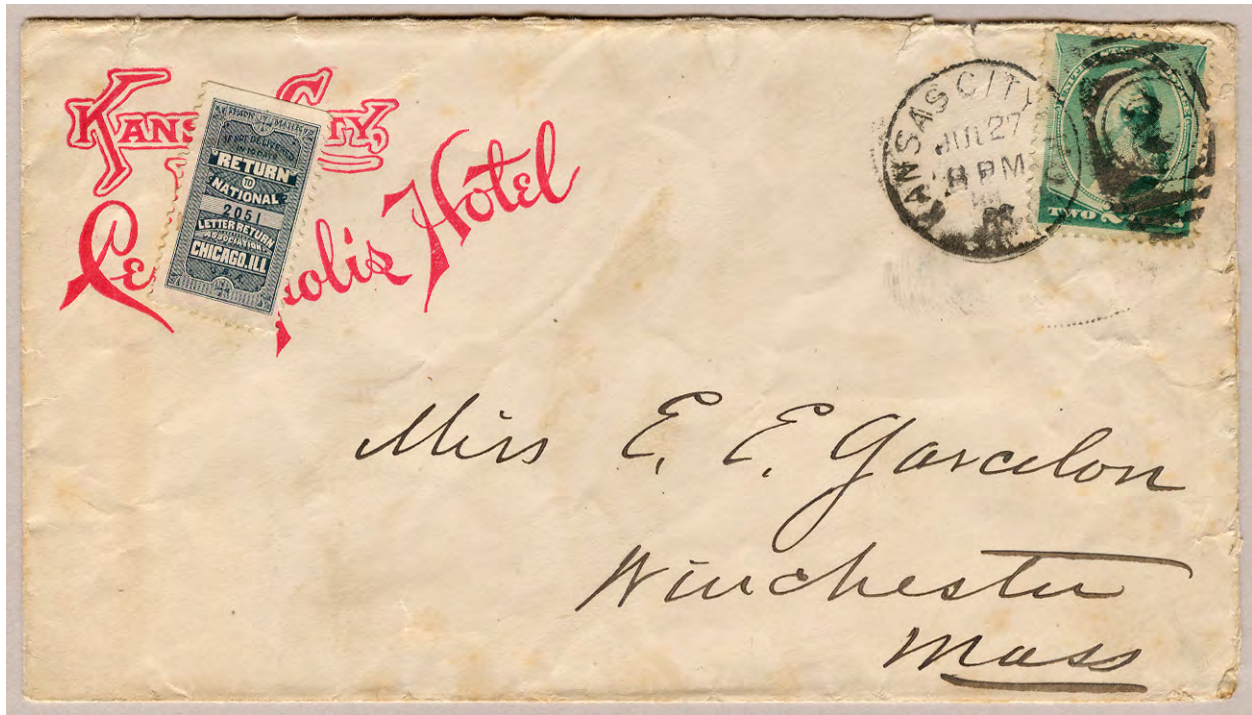 KANS CITY,
Ce polis Hotel
IF NOT DELIVERED
"RETURN"
TO
NATIONAL
2051
LETTER RETURN
ASSOCIATION
CHICAGO, ILL
KANSAS CITY
JUL 27
8 PM
TWO
Miss E. E. Garcelon
Winchester
Mass